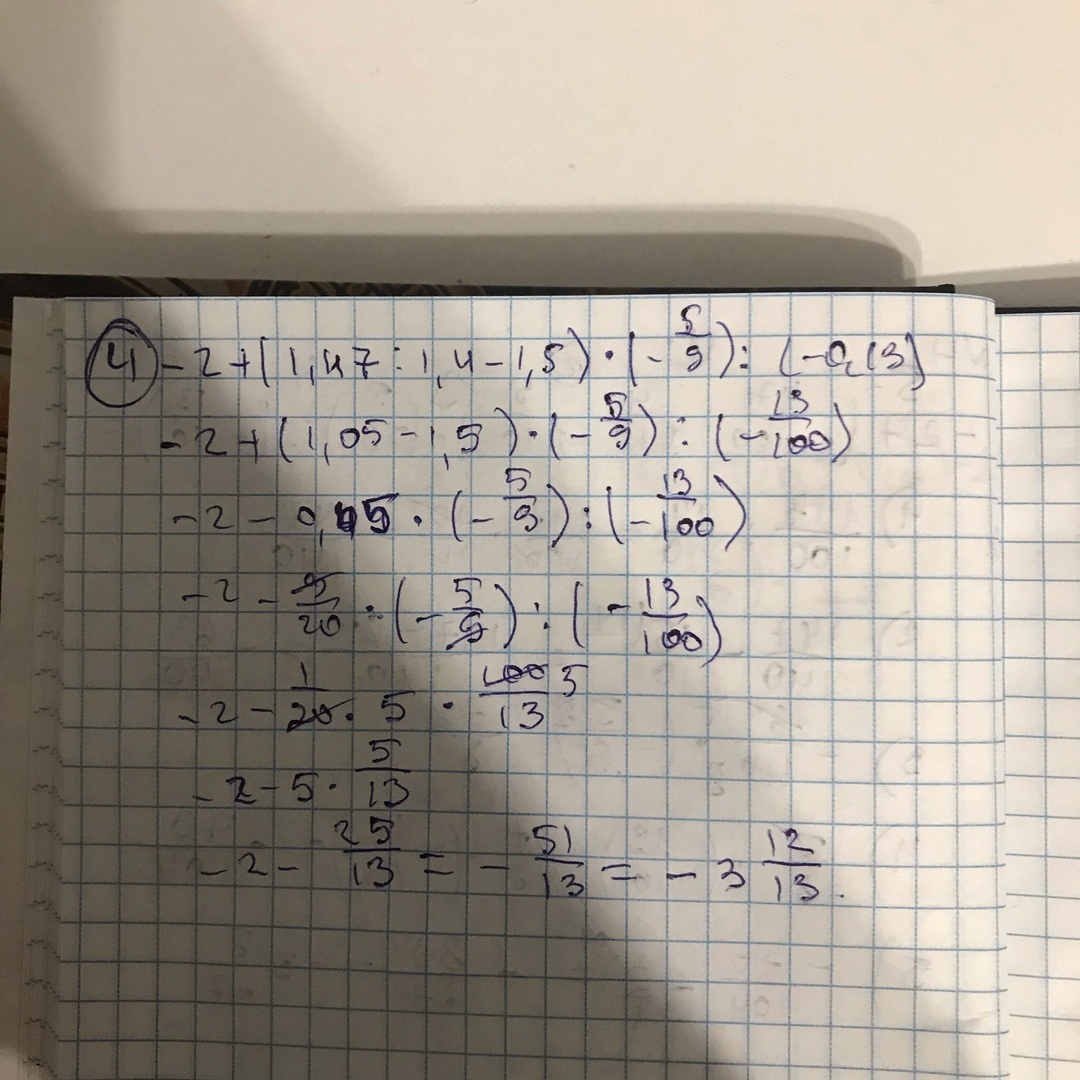 ④ -2+(1,47:1,4-1,5)·(-5/9):(-0,13)
-2+(1,05-1,5)·(-5/9):(-13/100)
-2-0,45·(-5/9):(-13/100)
-2-9/20:(-5/9):(-13/100)
-2-1/20·5·100/13 5
-2-5·5/13
-2-25/13=-51/13=-3 12/13.